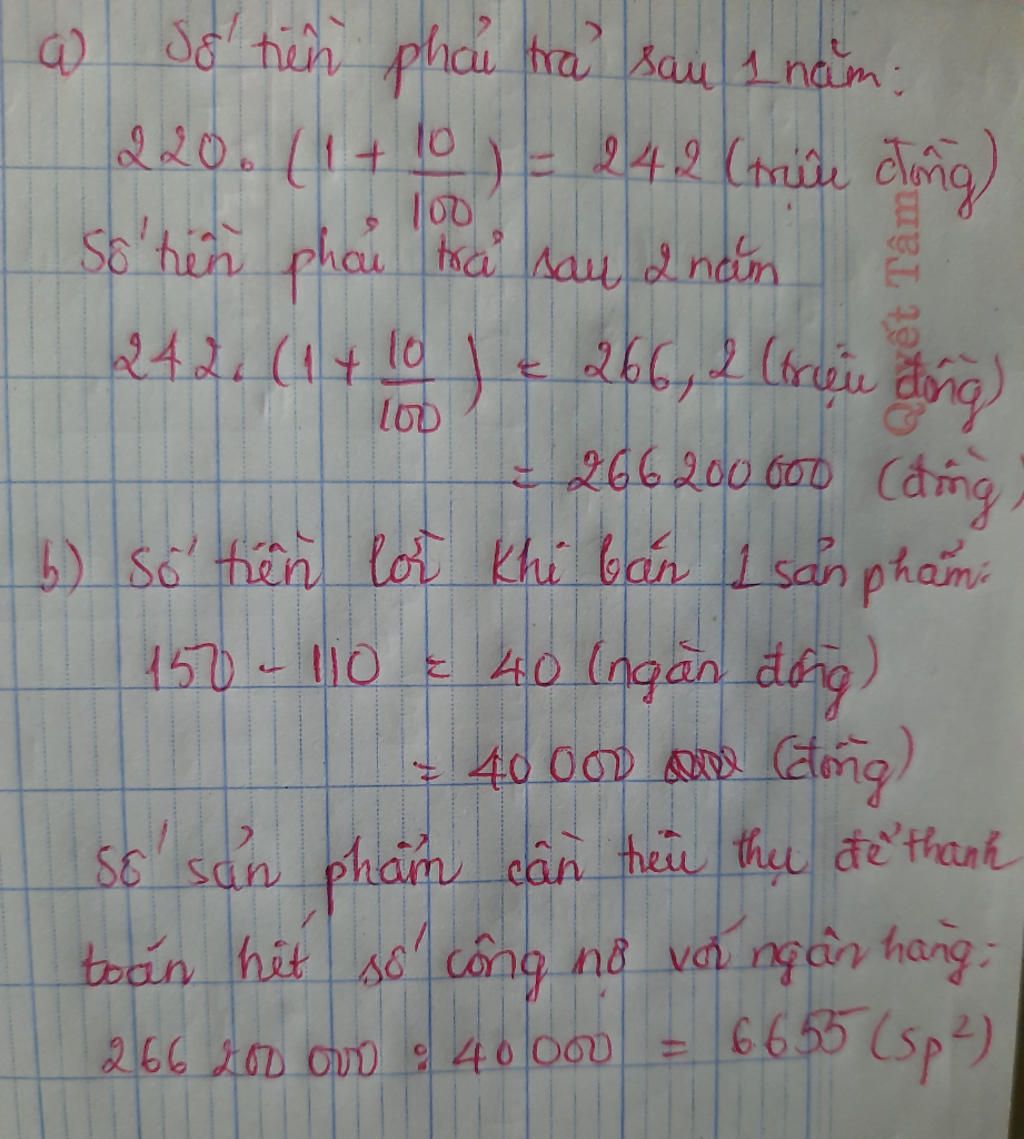 a) Số tiền phải trả sau 1 năm:
220. (1 + 10/100) = 242 (triệu đồng)
Số tiền phải trả sau 2 năm
242. (1 + 10/100) = 266,2 (triệu đồng)
= 266 200 000 (đồng)
b) Số tiền lời khi bán 1 sản phẩm:
150 - 110 = 40 (ngàn đồng)
= 40 000 (đồng)
Số sản phẩm cần tiêu thụ để thanh
toán hết số công nợ với ngân hàng:
266 200 000 : 40 000 = 6655 (sp²)
Quyết Tâm